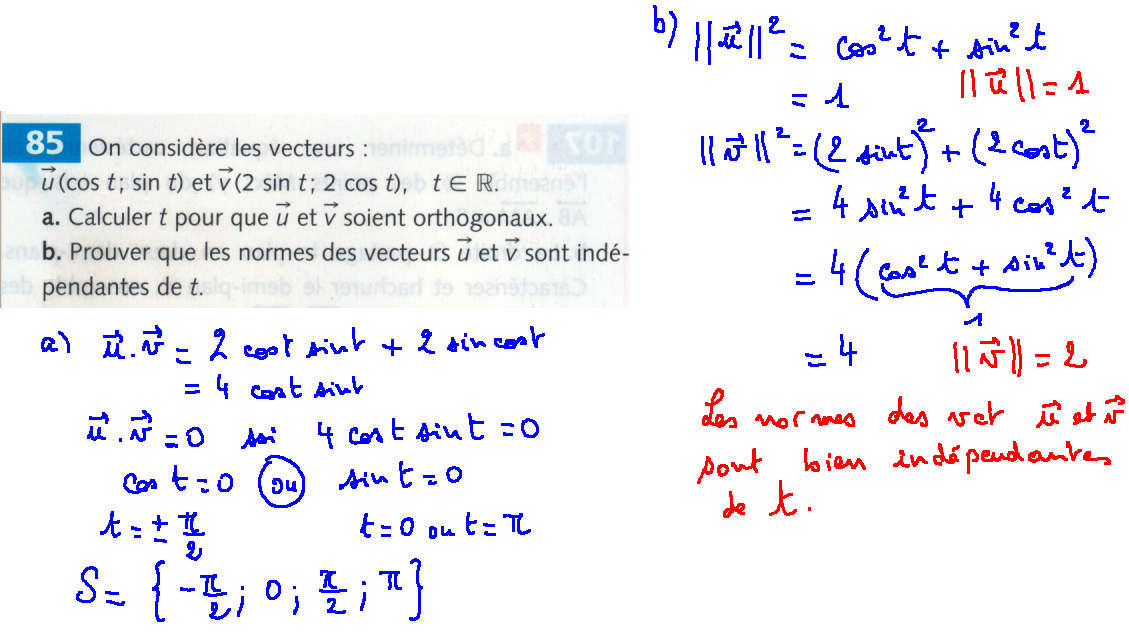 85 On considère les vecteurs :
u⃗(cos t ; sin t) et v⃗(2 sin t ; 2 cos t), t ∈ ℝ.
a. Calculer t pour que u⃗ et v⃗ soient orthogonaux.
b. Prouver que les normes des vecteurs u⃗ et v⃗ sont indé-
pendantes de t.
a) u⃗ . v⃗ = 2 cost sint + 2 sin cost
= 4 cost sint
u⃗ . v⃗ = 0 ssi 4 cos t sin t = 0
cos t = 0 ou sin t = 0
t = ± π/2 t = 0 ou t = π
S = { -π/2 ; 0 ; π/2 ; π }
b) ||u⃗||² = cos² t + sin² t
= 1 ||u⃗|| = 1
||v⃗||² = (2 sint)² + (2 cost)²
= 4 sin² t + 4 cos² t
= 4 (cos² t + sin² t)
1
= 4 ||v⃗|| = 2
Les normes des vct u⃗ et v⃗
sont bien indépendantes
de t.